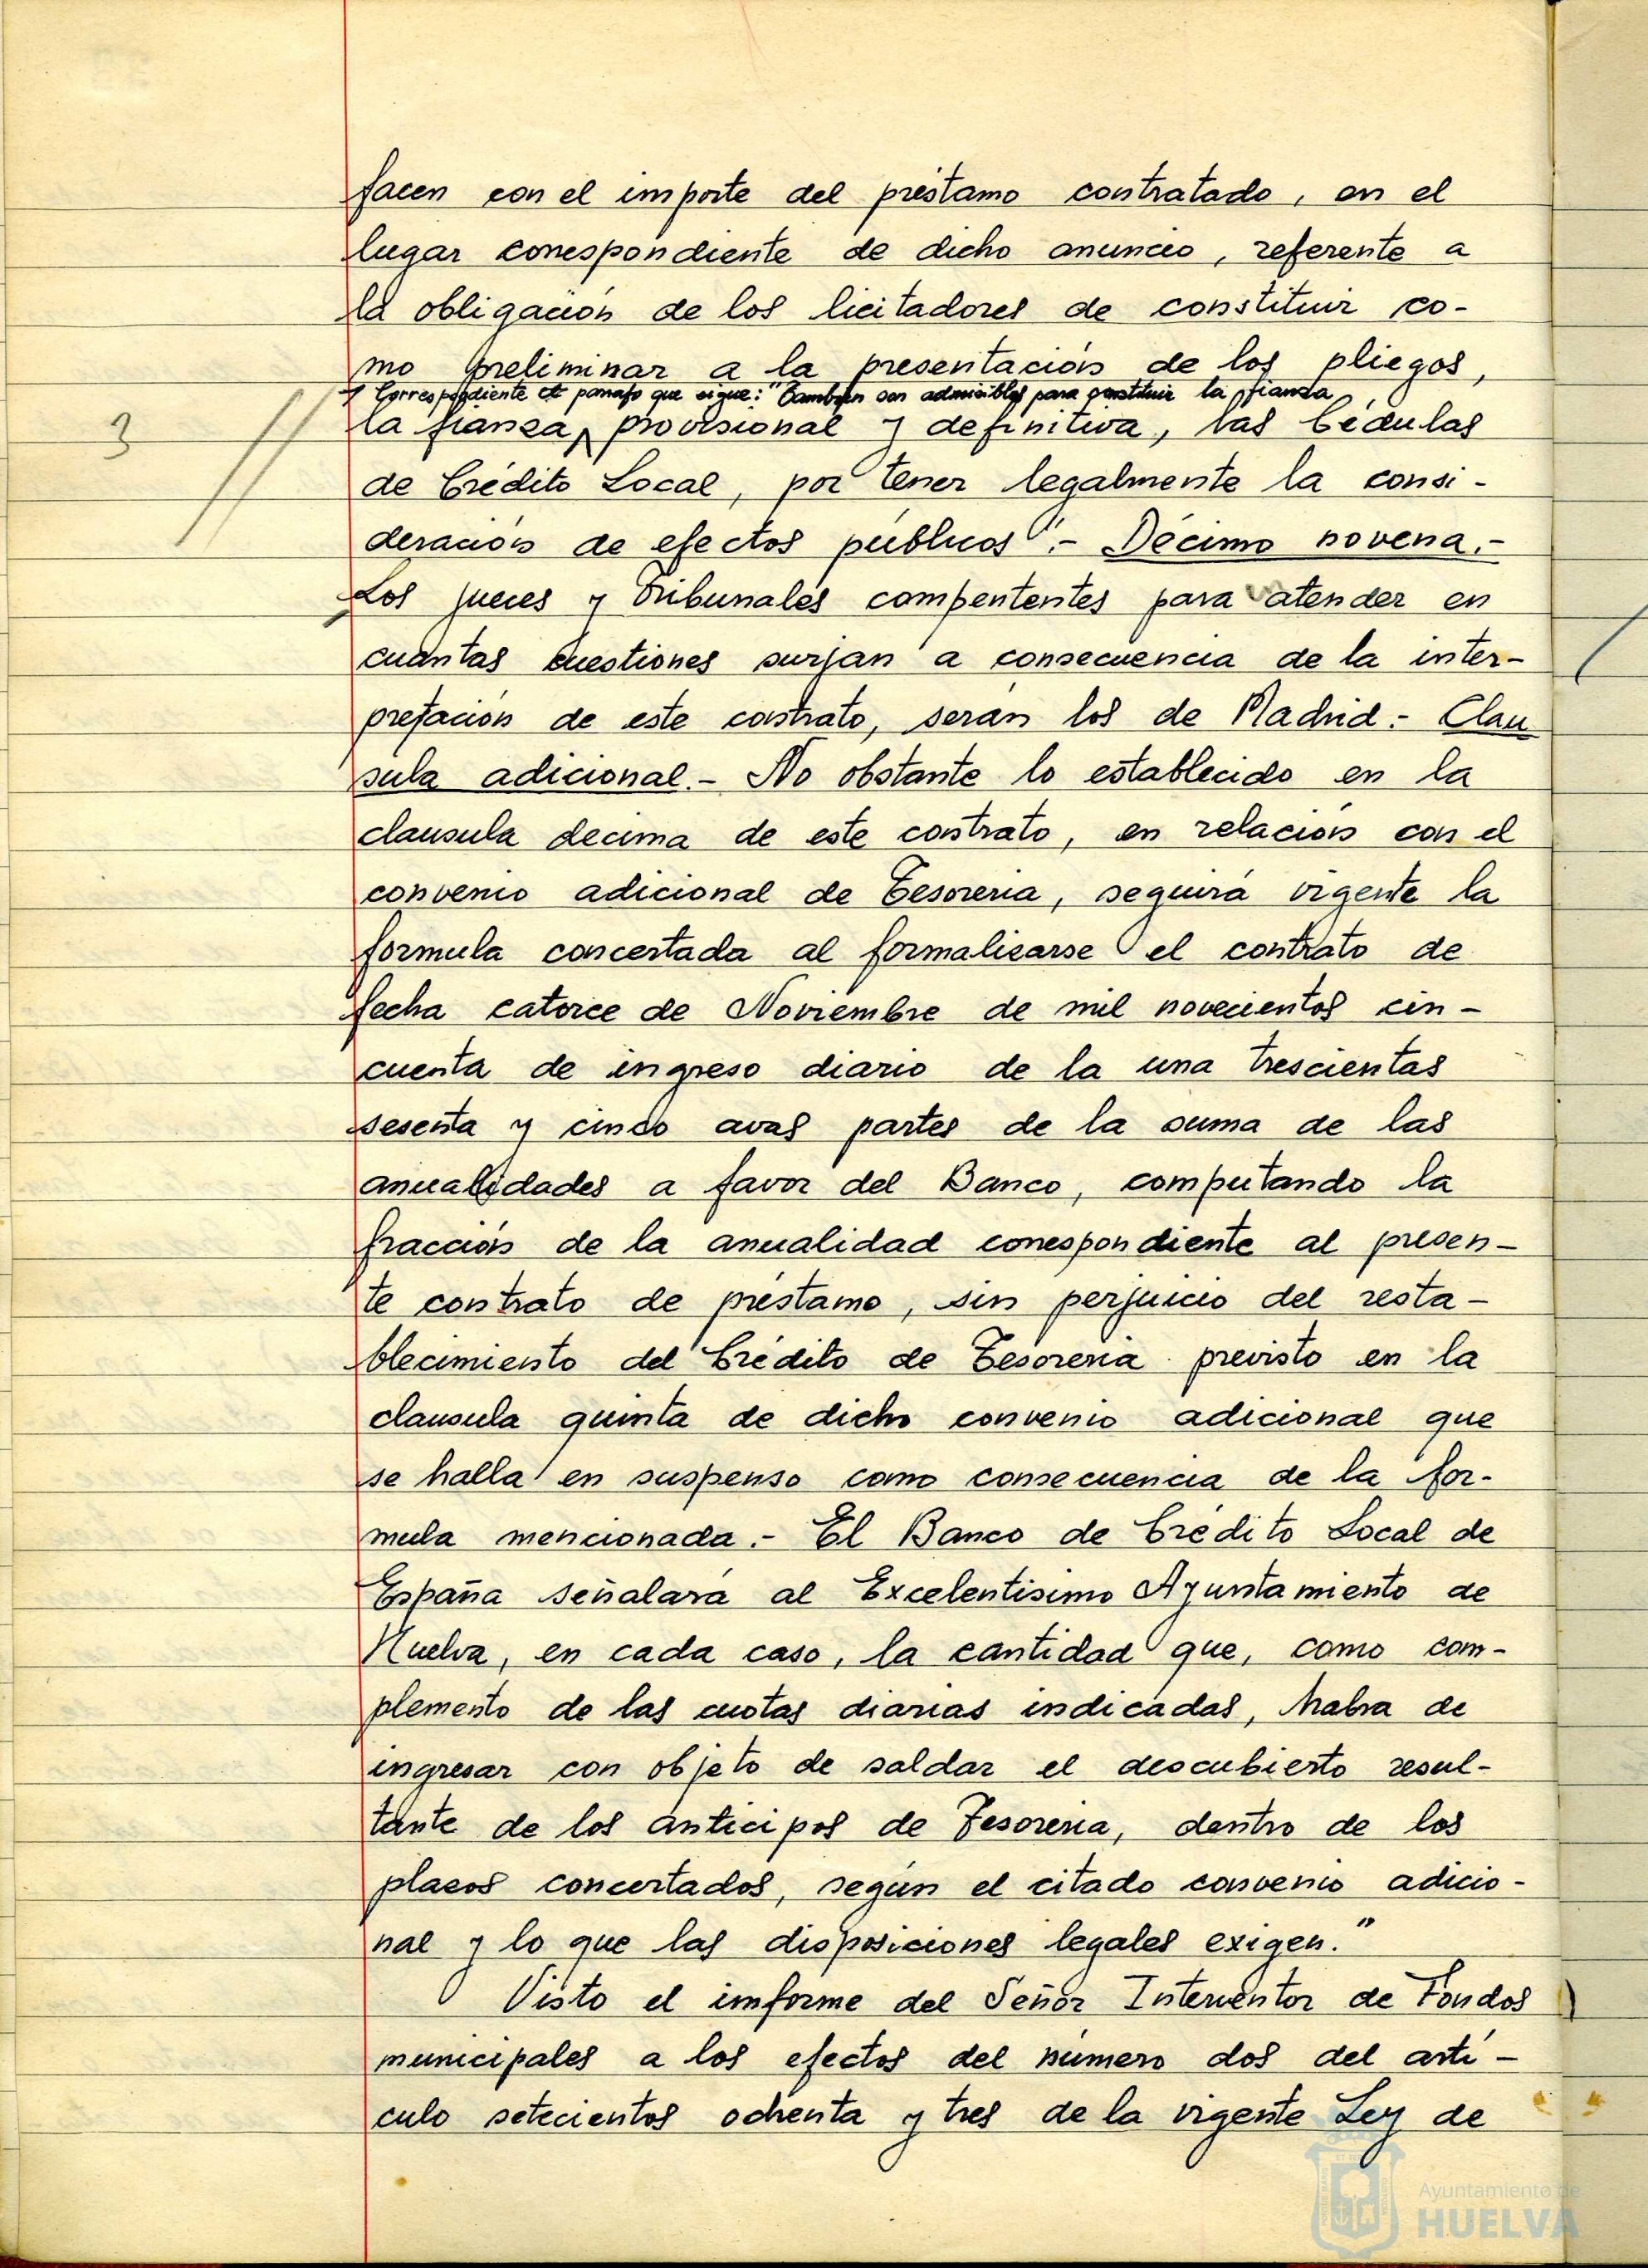 facen con el importe del préstamo contratado, en el
lugar correspondiente de dicho anuncio, referente a
la obligación de los licitadores de constituir co-
mo preliminar a la presentación de los pliegos,
Correspondiente el parrafo que sigue: "Tambien son admisibles para constituir la fianza
la fianza, provisional y definitiva, las Cédulas
de Crédito Local, por tener legalmente la consi-
deración de efectos publicos".- Décimo novena.-
Los jueces y Tribunales compententes para atender en
cuantas cuestiones surjan a consecuencia de la inter-
pretación de este contrato, serán los de Madrid.- Clau
sula adicional.- No obstante lo establecido en la
clausula decima de este contrato, en relación con el
convenio adicional de Tesoreria, seguirá vigente la
formula concertada al formalizarse el contrato de
fecha catorce de Noviembre de mil novecientos cin-
cuenta de ingreso diario de la una trescientas
sesenta y cinco avas partes de la suma de las
anualidades a favor del Banco, computando la
fracción de la anualidad correspondiente al presen-
te contrato de préstamo, sin perjuicio del resta-
blecimiento del Crédito de Tesoreria previsto en la
clausula quinta de dicho convenio adicional que
se halla en suspenso como consecuencia de la for-
mula mencionada.- El Banco de Crédito Local de
España señalará al Excelentisimo Ayuntamiento de
Huelva, en cada caso, la cantidad que, como com-
plemento de las cuotas diarias indicadas, habra de
ingresar con objeto de saldar el descubierto resul-
tante de los anticipos de Tesoreria, dentro de los
plazos concertados, según el citado convenio adicio-
nal y lo que las disposiciones legales exigen."
Visto el imforme del Señor Interventor de Fondos
municipales a los efectos del número dos del arti-
culo setecientos ochenta y tres de la vigente Ley de
3
Ayuntamiento de
HUELVA